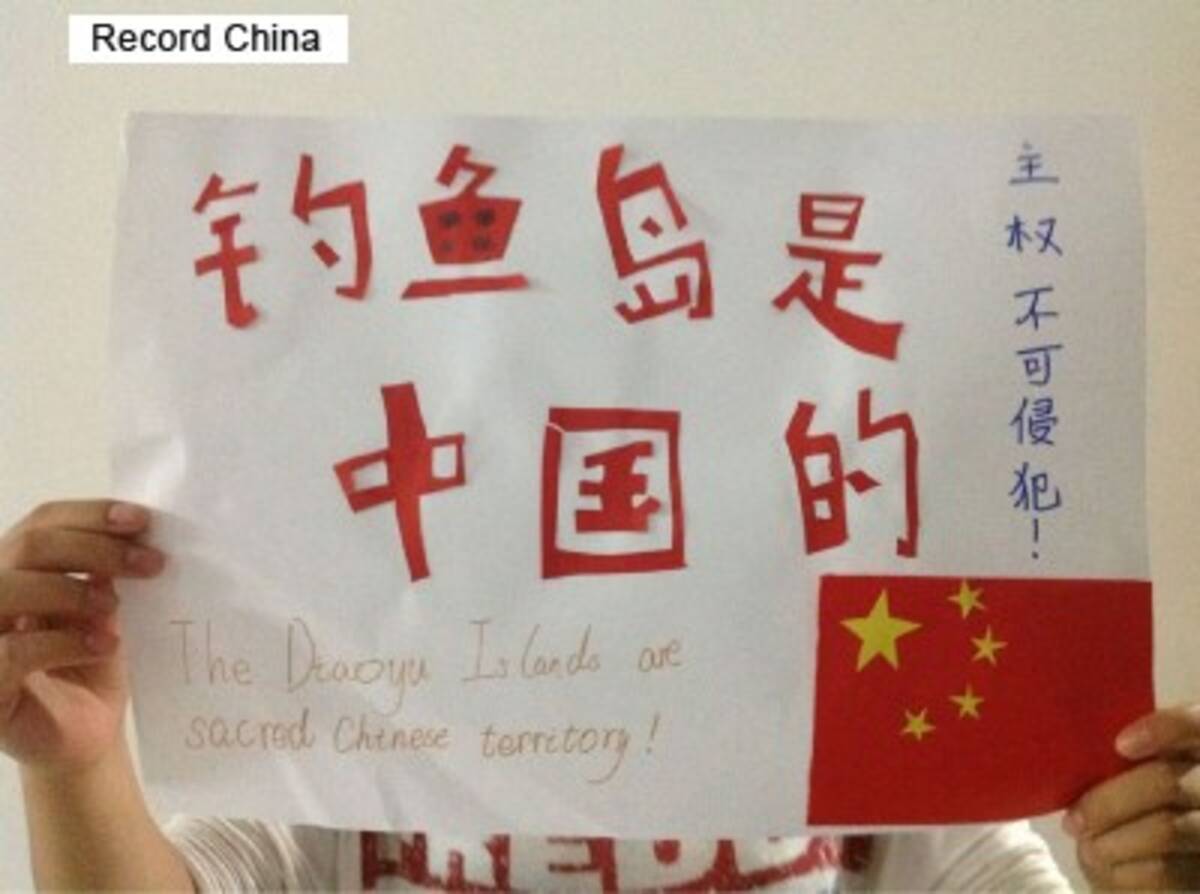 Record China
钓鱼岛是
中国的
主权不可侵犯!
The Diaoyu Islands are
sacred Chinese territory!